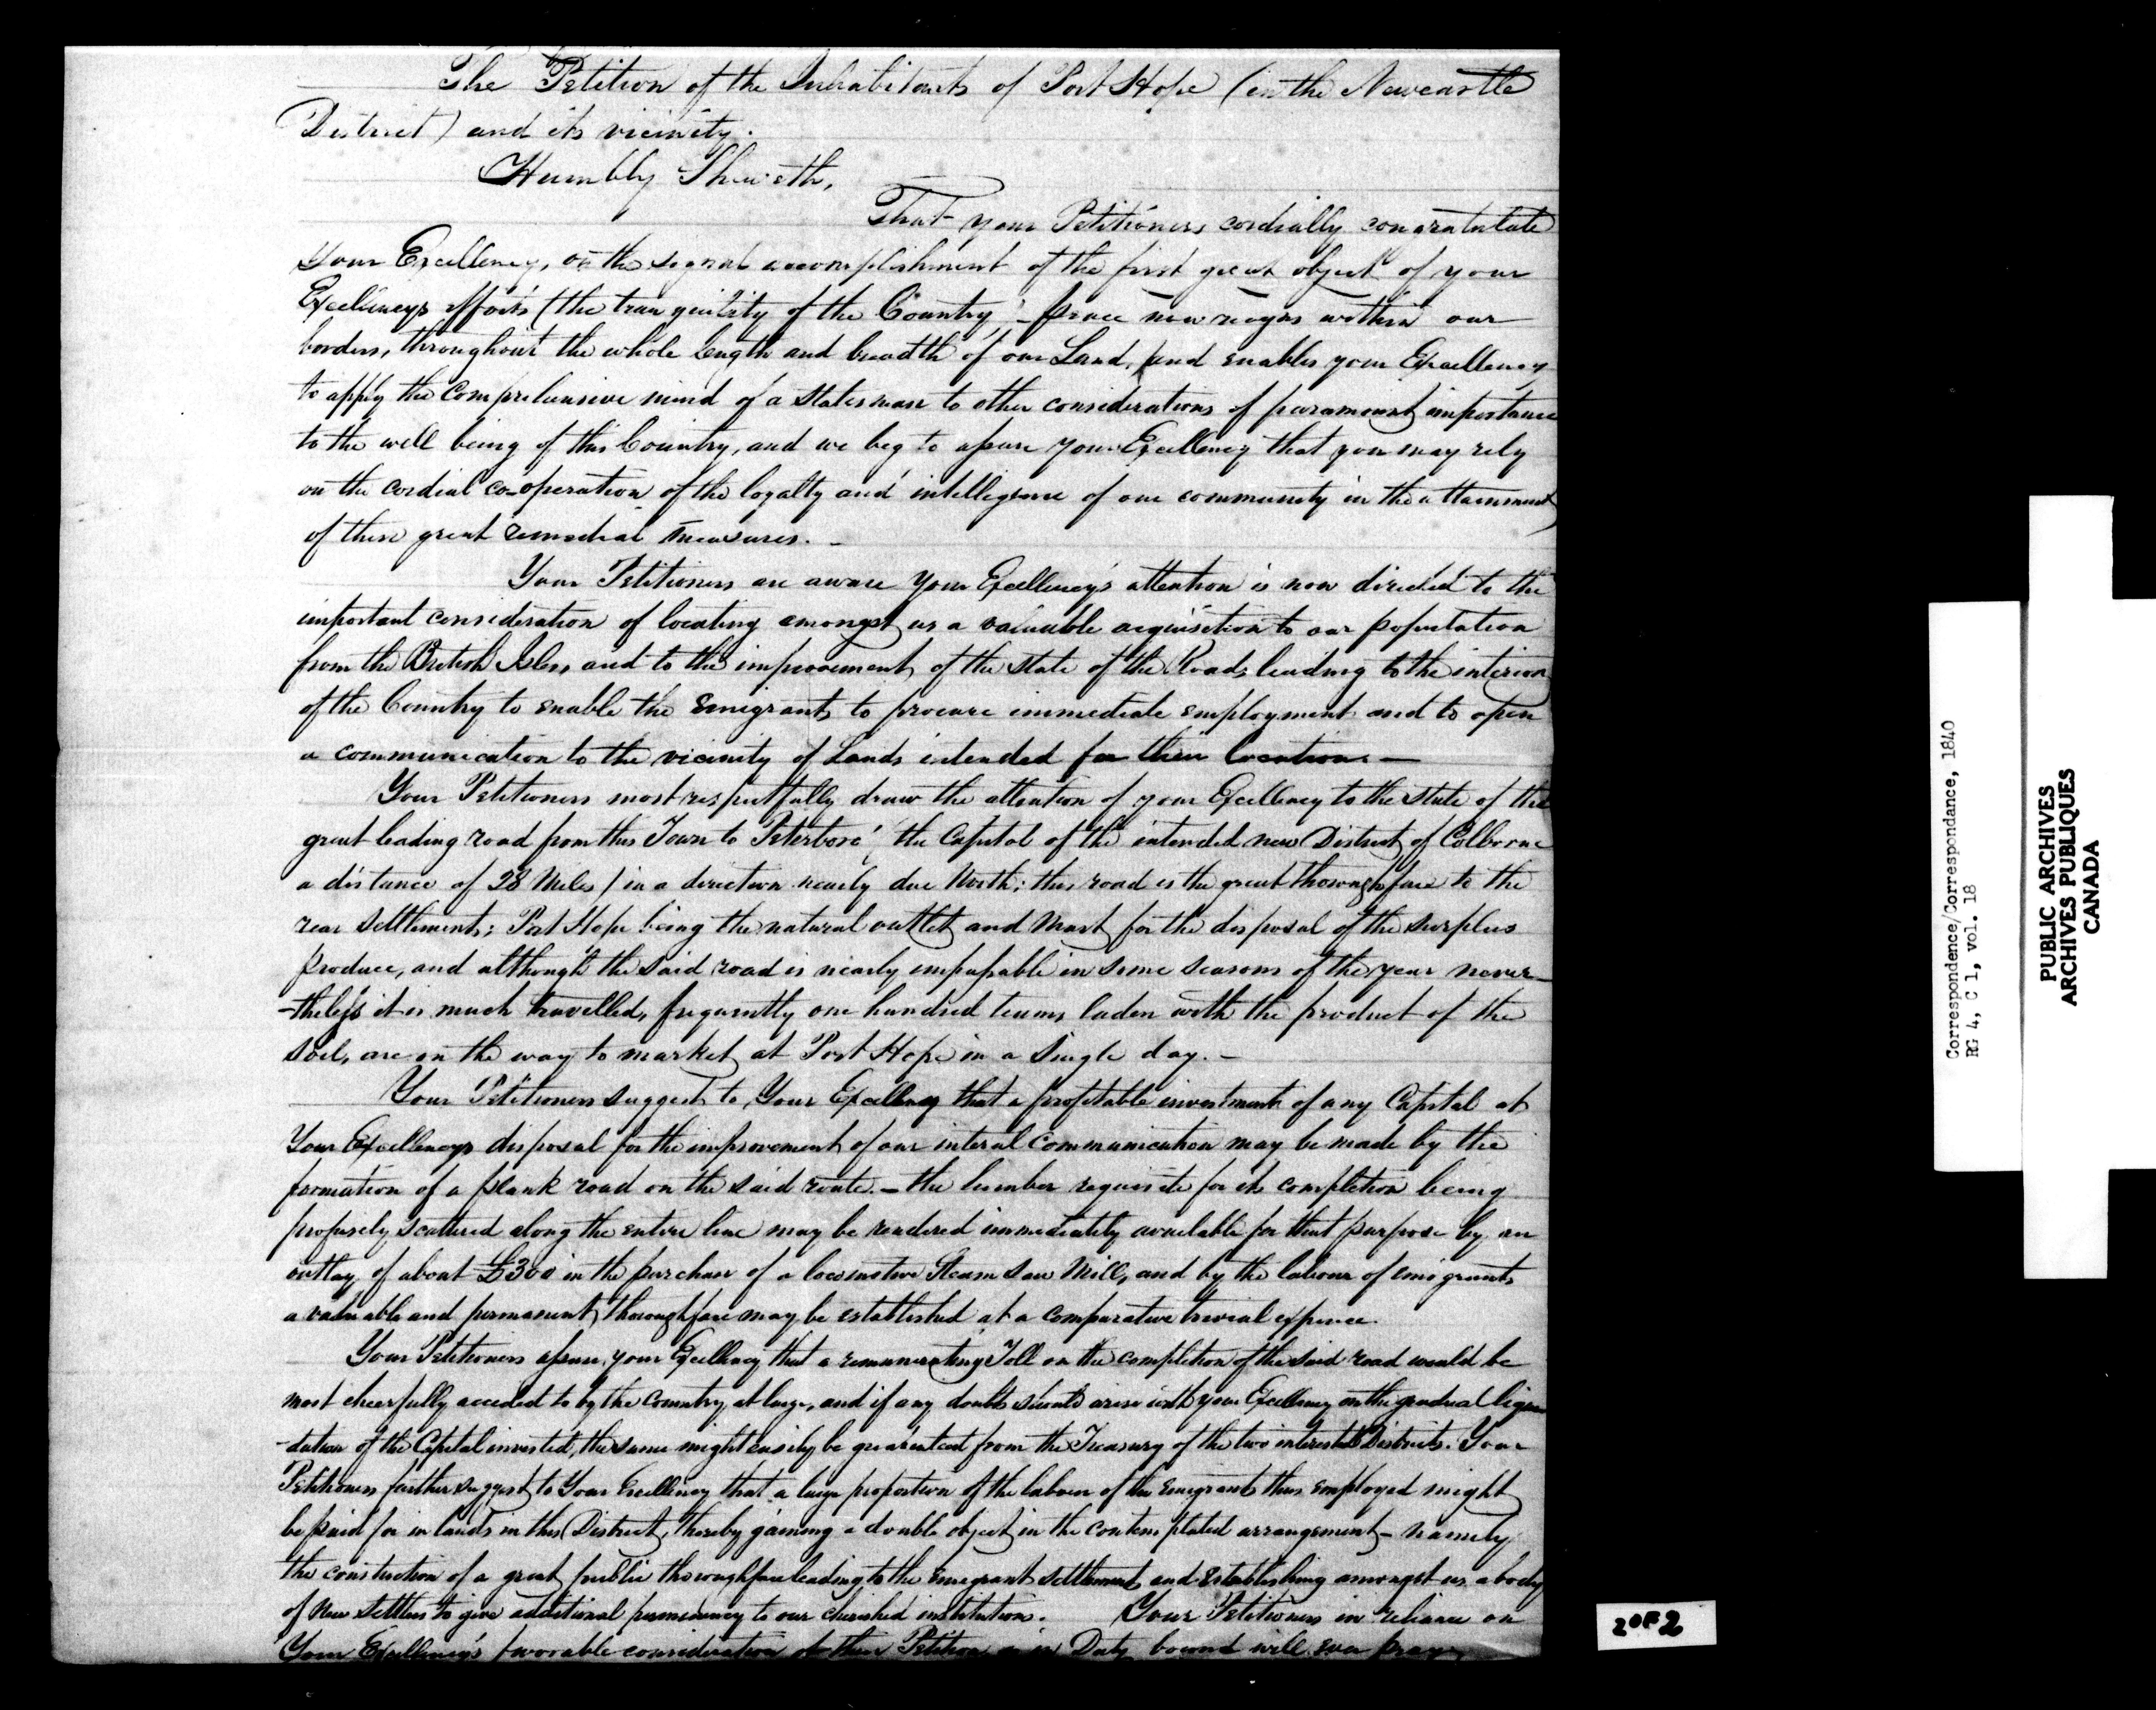 The Petition of the Inhabitants of Port Hope (in the Newcastle
District) and its vicinity.
Humbly Sheweth,
That your Petitioners cordially congratulate
Your Excellency, on the signal accomplishment of the first great object of your
Excellency's efforts (the tranquility of the Country - peace now reigns within our
borders, throughout the whole length and breadth of our Land, and enables your Excellency
to apply the comprehensive mind of a statesman to other considerations of paramount importance
to the well being of this Country, and we beg to assure your Excellency that you may rely
on the cordial co-operation of the loyalty and intelligence of our community in the attainment
of these great remedial measures. -
Your Petitioners are aware Your Excellency's attention is now directed to the
important consideration of locating amongst us a valuable acquisition to our population
from the British Isles, and to the improvement of the state of the Roads leading to the interior
of the Country to enable the Emigrants to procure immediate employment and to open
a communication to the vicinity of Lands intended for their locations -
Your Petitioners most respectfully draw the attention of your Excellency to the state of the
great leading road from this Town to Peterboro' (the Capital of the intended new District of Colborne
a distance of 28 Miles) in a direction nearly due North; this road is the great thoroughfare to the
rear settlements; Port Hope being the natural outlet and Mart for the disposal of the surplus
produce, and although the said road is nearly impassable in some seasons of the year never
-theless it is much travelled, frequently one hundred teams laden with the product of the
soil, are on the way to market at Port Hope in a single day. -
Your Petitioners suggest to Your Excellency that a profitable investment of any Capital at
Your Excellencys disposal for the improvement of our interal communication may be made by the
formation of a plank road on the said route. - the lumber requisite for its completion being
profusely scattered along the entire line may be rendered immediately available for that purpose by an
outlay of about £300 in the purchase of a locomotive Steam Saw Mill, and by the labour of emigrants
a valuable and permanent thoroughfare may be established at a comparative trivial expence.
Your Petitioners assure your Excellency that a remunerating Toll on the completion of the said road would be
most cheerfully acceded to by the Country at large, and if any doubts should arise with your Excellency on the gradual liqui
-dation of the Capital invested, the same might easily be guaranteed from the Treasury of the two interested Districts. Your
Petitioners further suggest to Your Excellency that a large proportion of the labour of the Emigrants thus employed might
be paid for in lands in this District, thereby gaining a double object in the contemplated arrangement - namely
the constuction of a great public thoroughfare leading to the Emigrant settlements and establishing amongst us a body
of new settlers to give additional permanency to our cherished institutions. Your Petitioners in reliance on
Your Excellency's favorable consideration of their Petition in Duty bound will ever pray
Correspondence/Correspondance, 1840
RG 4, C 1, vol. 18
PUBLIC ARCHIVES
ARCHIVES PUBLIQUES
CANADA
2 OF 2